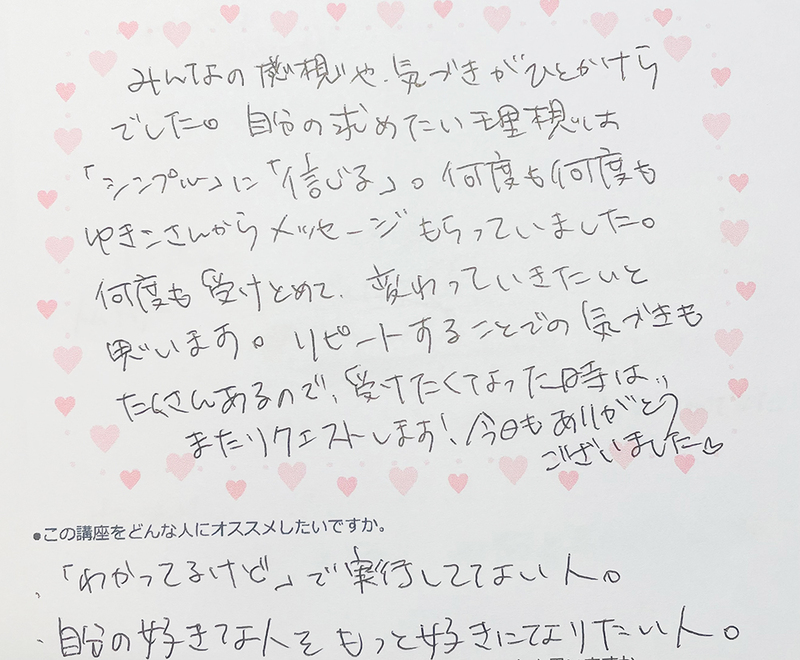 みんなの感想や、気づきがひとかけら
でした。自分の求めたい理想は
「シンプル」に「信じる」。何度も何度も
ゆきこさんからメッセージもらっていました。
何度も受けとめて、変わっていきたいと
思います。リピートすることでの気づきも
たくさんあるので、受けたくなった時は、、
またリクエストします!今日もありがとう
ございました♡
●この講座をどんな人にオススメしたいですか。
、「わかってるけど」で実行してない人。
、自分の好きな人をもっと好きになりたい人。